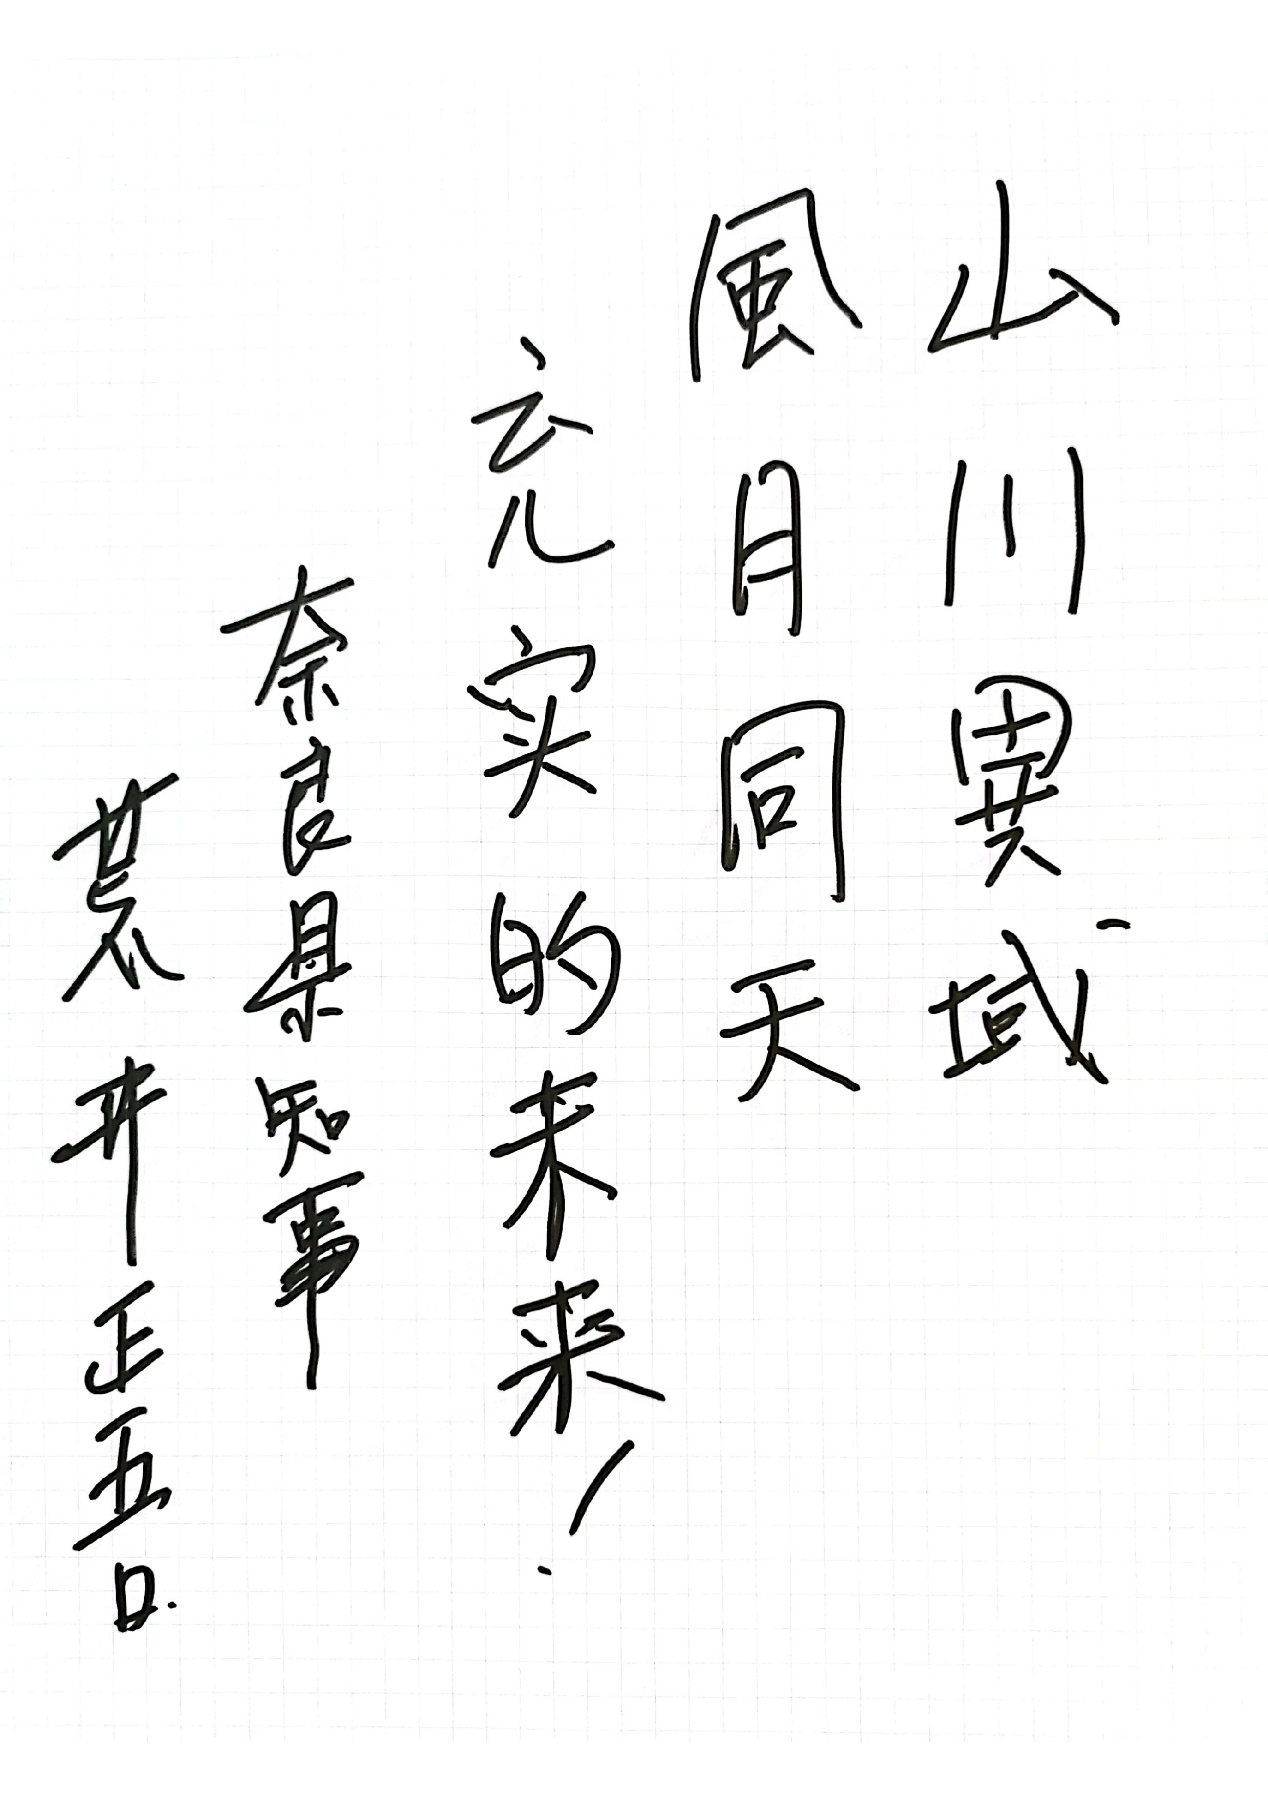 山川異域
風月同天
充实的未来!
奈良県知事
荒井正吾